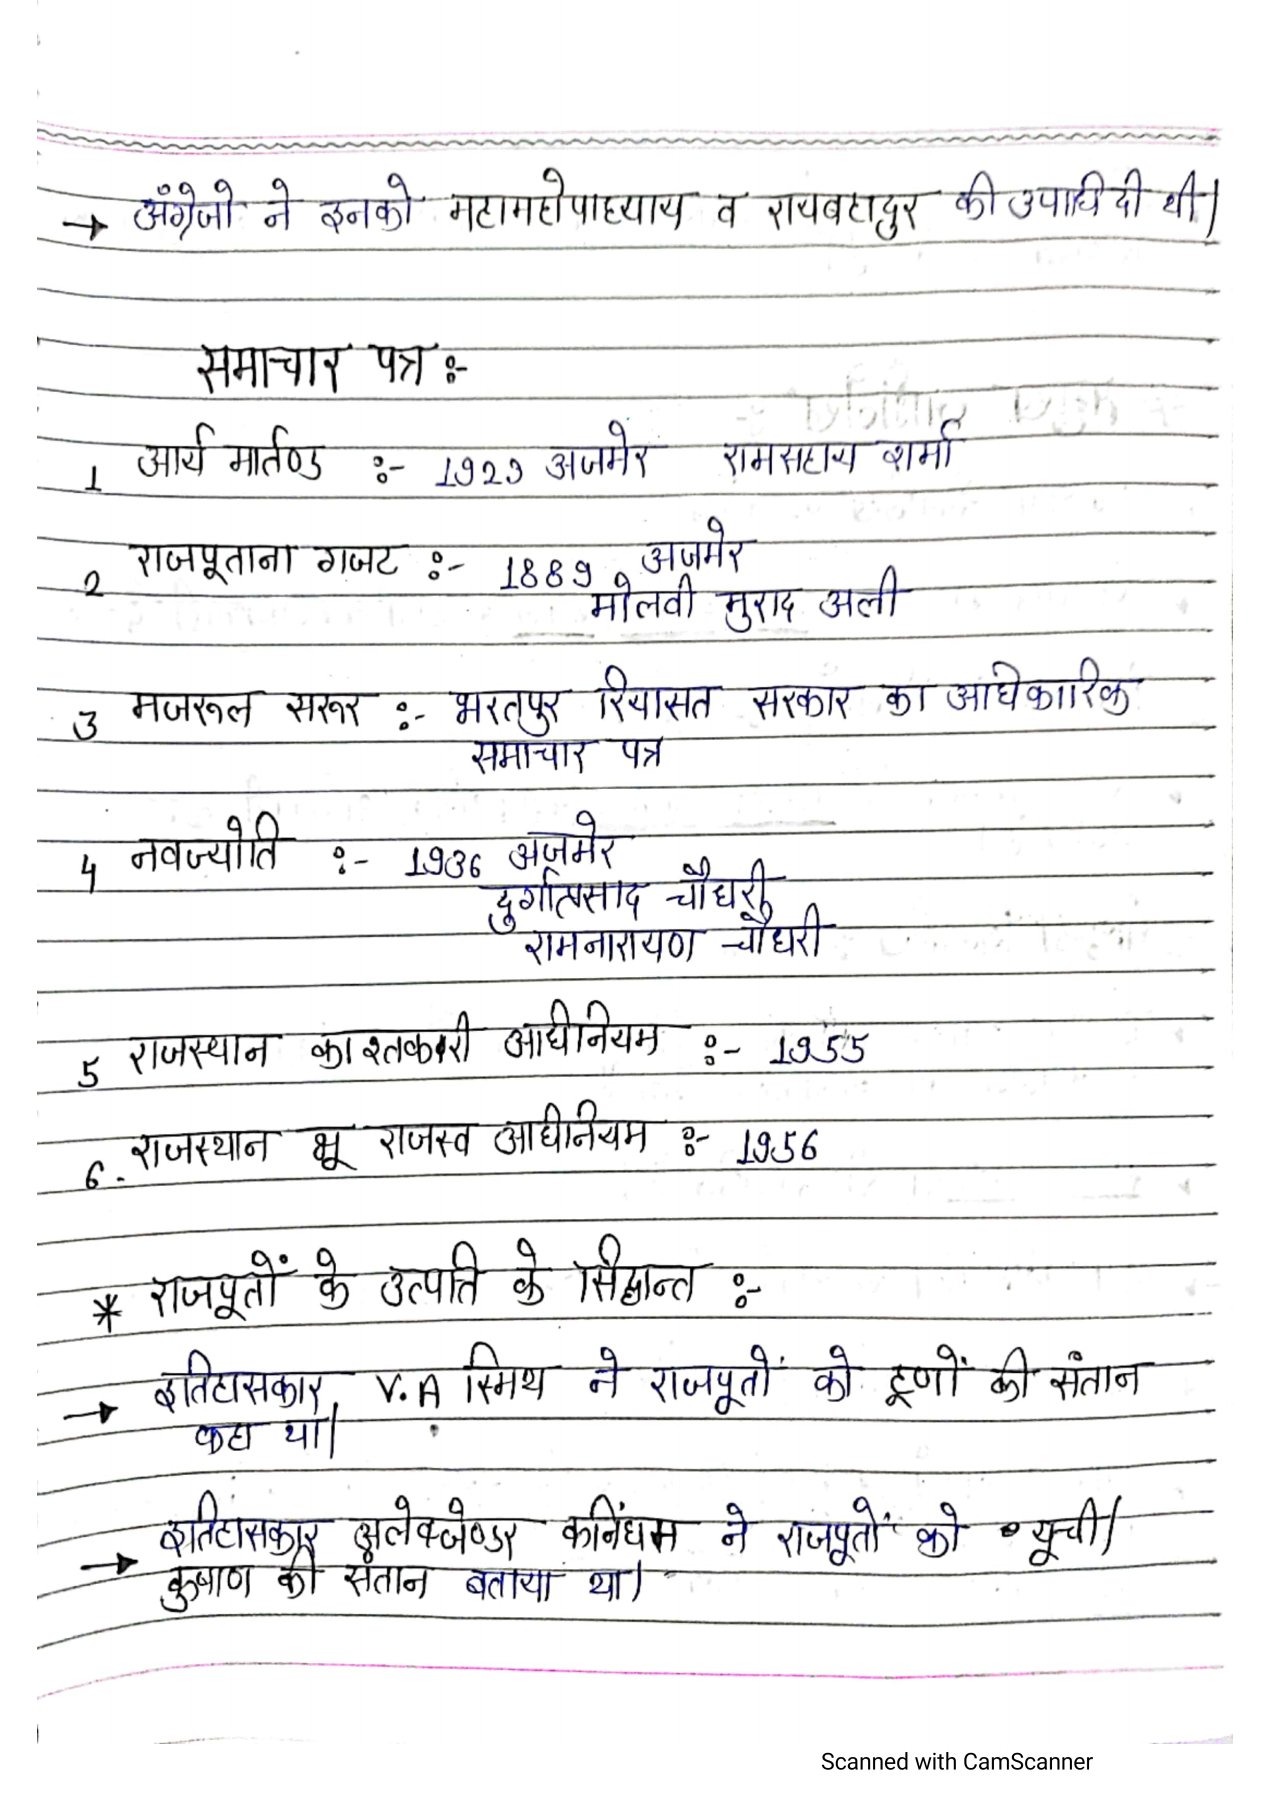 → अंग्रेजो ने इनको महामहोपाध्याय व रायबहादुर की उपाधि दी थी।
समाचार पत्र :-
1 आर्य मार्तण्ड :- 1929 अजमेर रामसहाय शर्मा
2 राजपूताना गजट :- 1889 अजमेर
मोलवी मुराद अली
3 मजरूल सरूर :- भरतपुर रियासत सरकार का आधिकारिक
समाचार पत्र
4 नवज्योति :- 1936 अजमेर
दुर्गाप्रसाद चौधरी,
रामनारायण चौधरी
5 राजस्थान काश्तकारी अधिनियम :- 1955
6. राजस्थान भू राजस्व अधिनियम :- 1956
* राजपूतों के उत्पति के सिद्धान्त :-
→ इतिहासकार V.A स्मिथ ने राजपूतों को हूणों की संतान
कहा था।
→ इतिहासकार अलेक्जेण्डर कनिंघम ने राजपूतों को यूची/
कुषाण की संतान बताया था।
Scanned with CamScanner